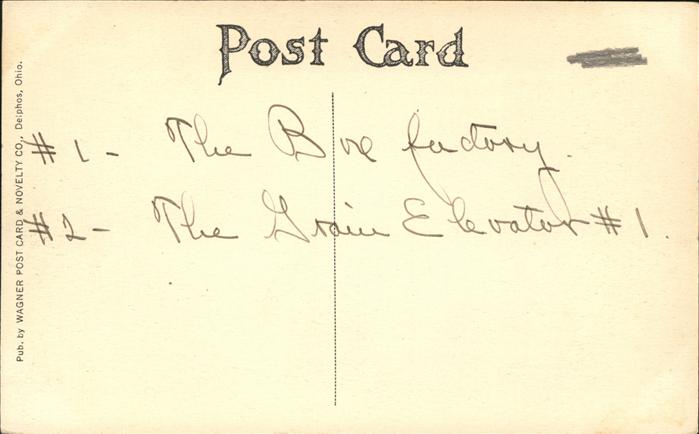 Post Card
#1 - The Box factory.
#2 - The Grain Elevator #1.
Pub. by WAGNER POST CARD & NOVELTY CO., Delphos, Ohio.